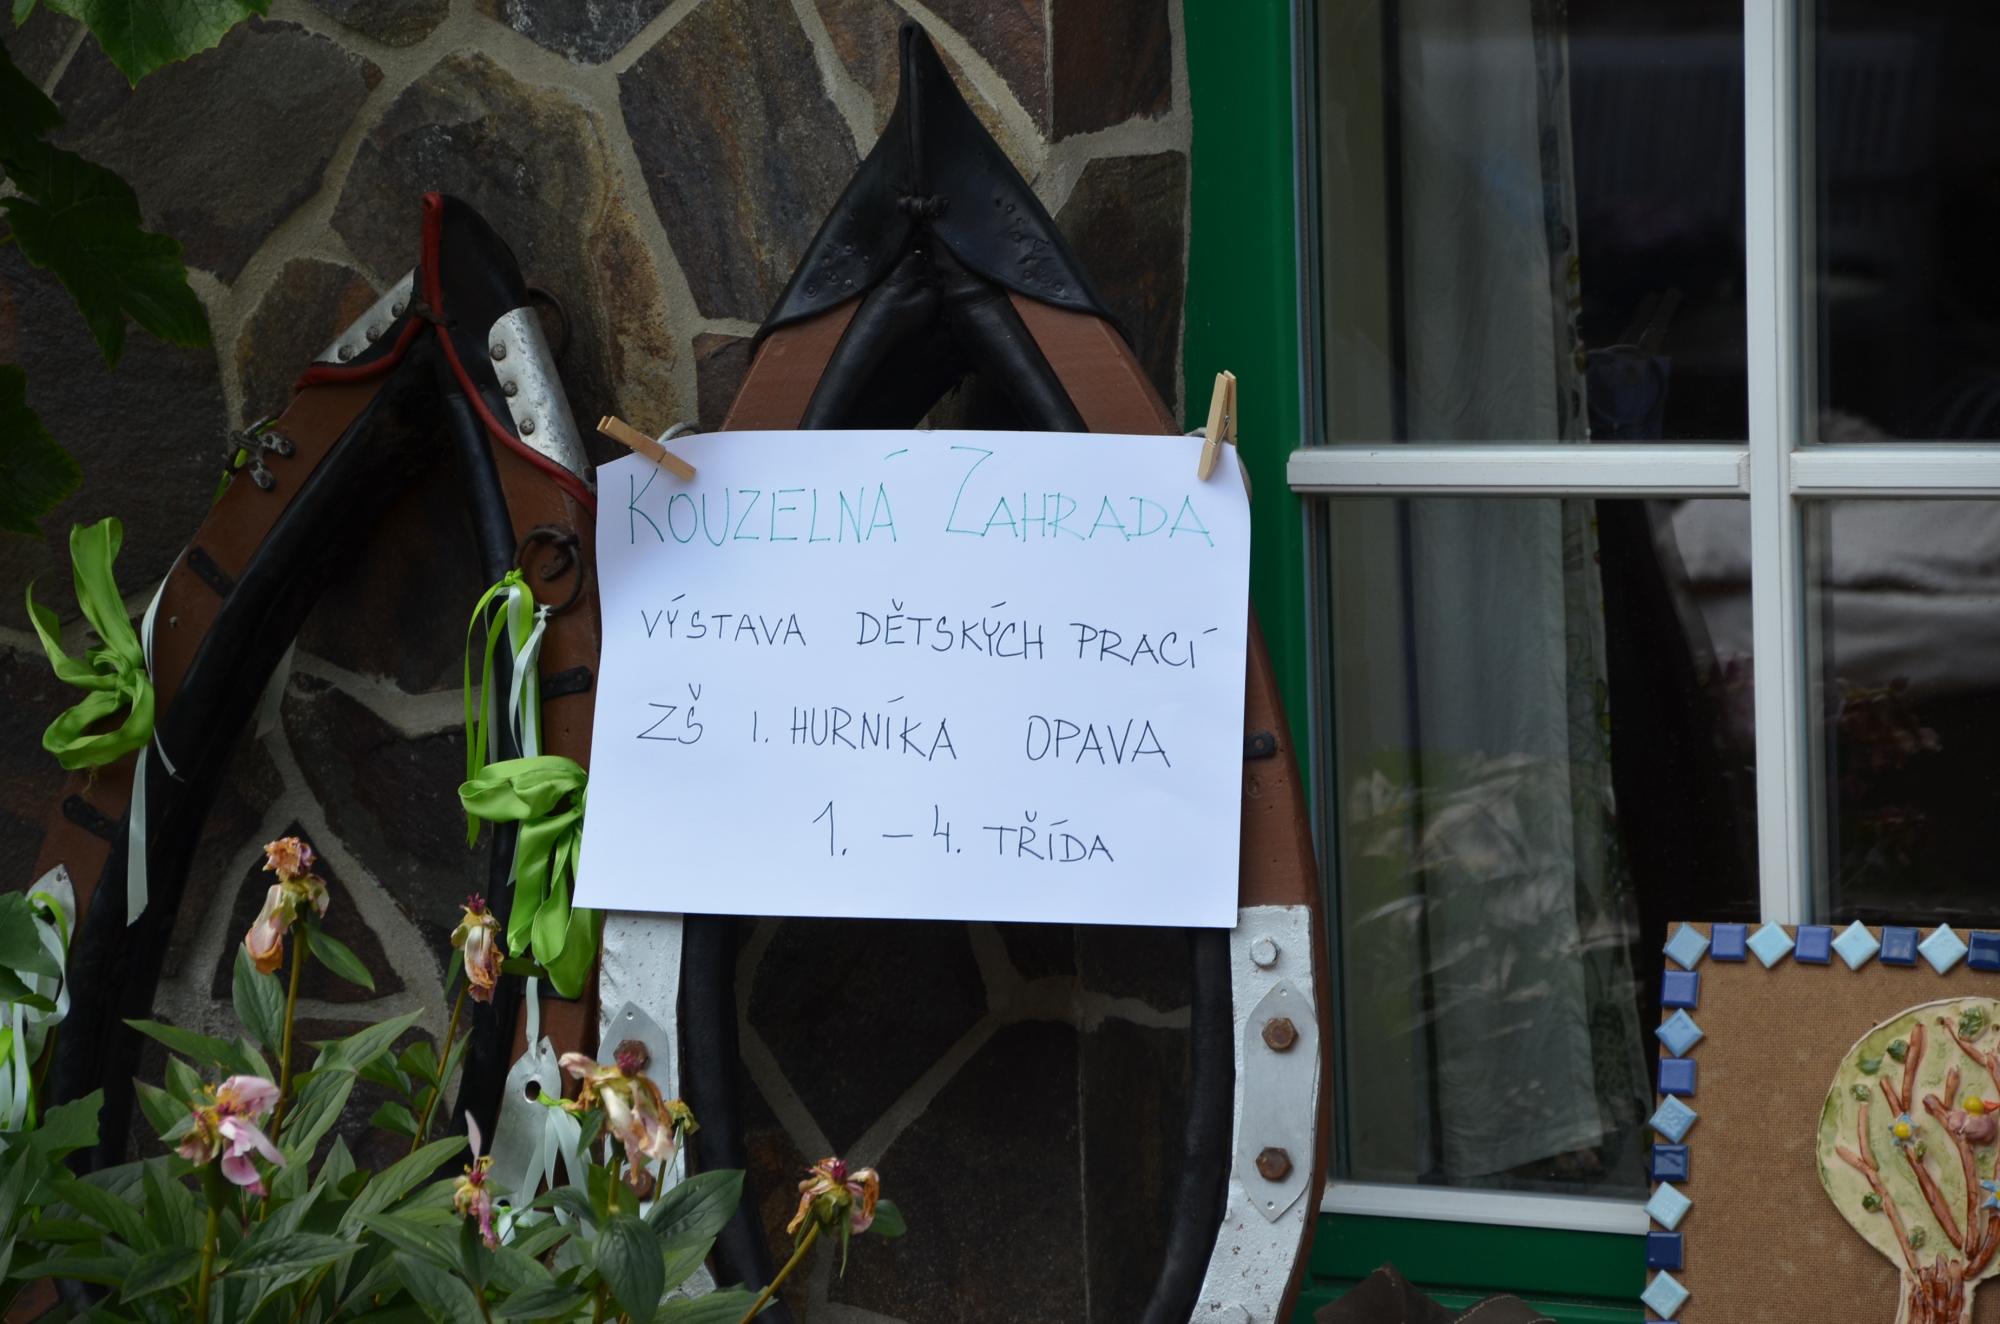 KOUZELNÁ ZAHRADA
VÝSTAVA DĚTSKÝCH PRACÍ
ZŠ I. HURNÍKA OPAVA
1. – 4. TŘÍDA